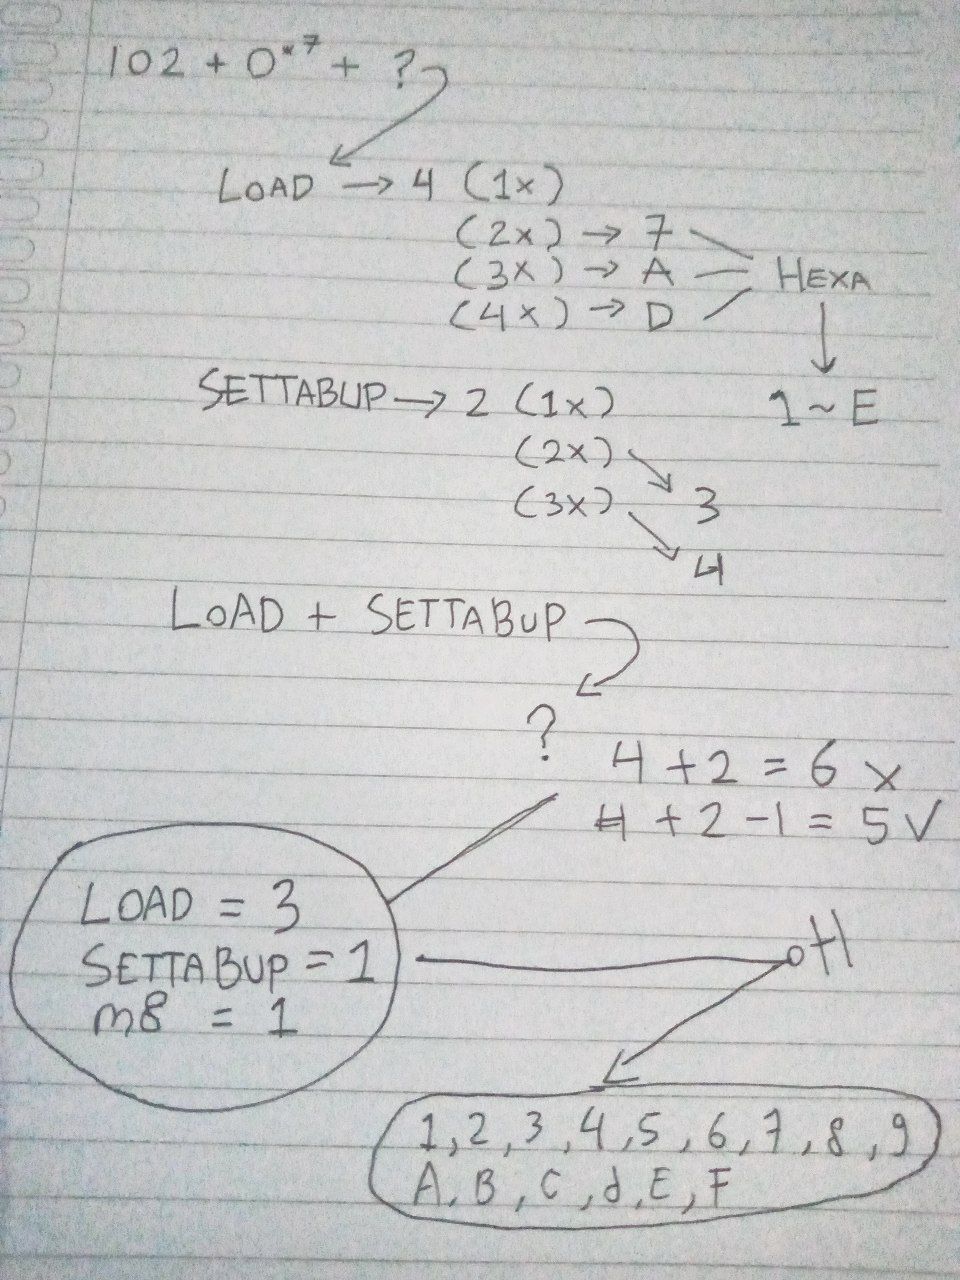 102 + 0*7 + ?
LOAD → 4 (1x)
(2x) → 7
(3x) → A
HEXA
(4x) → D
SETTABUP → 2 (1x)
1 ~ E
(2x)
(3x)
3
4
LOAD + SETTABUP
?
4 + 2 = 6 x
4 + 2 - 1 = 5 √
LOAD = 3
SETTABUP = 1
m8 = 1
oH
1, 2, 3, 4, 5, 6, 7, 8, 9
A, B, C, d, E, F